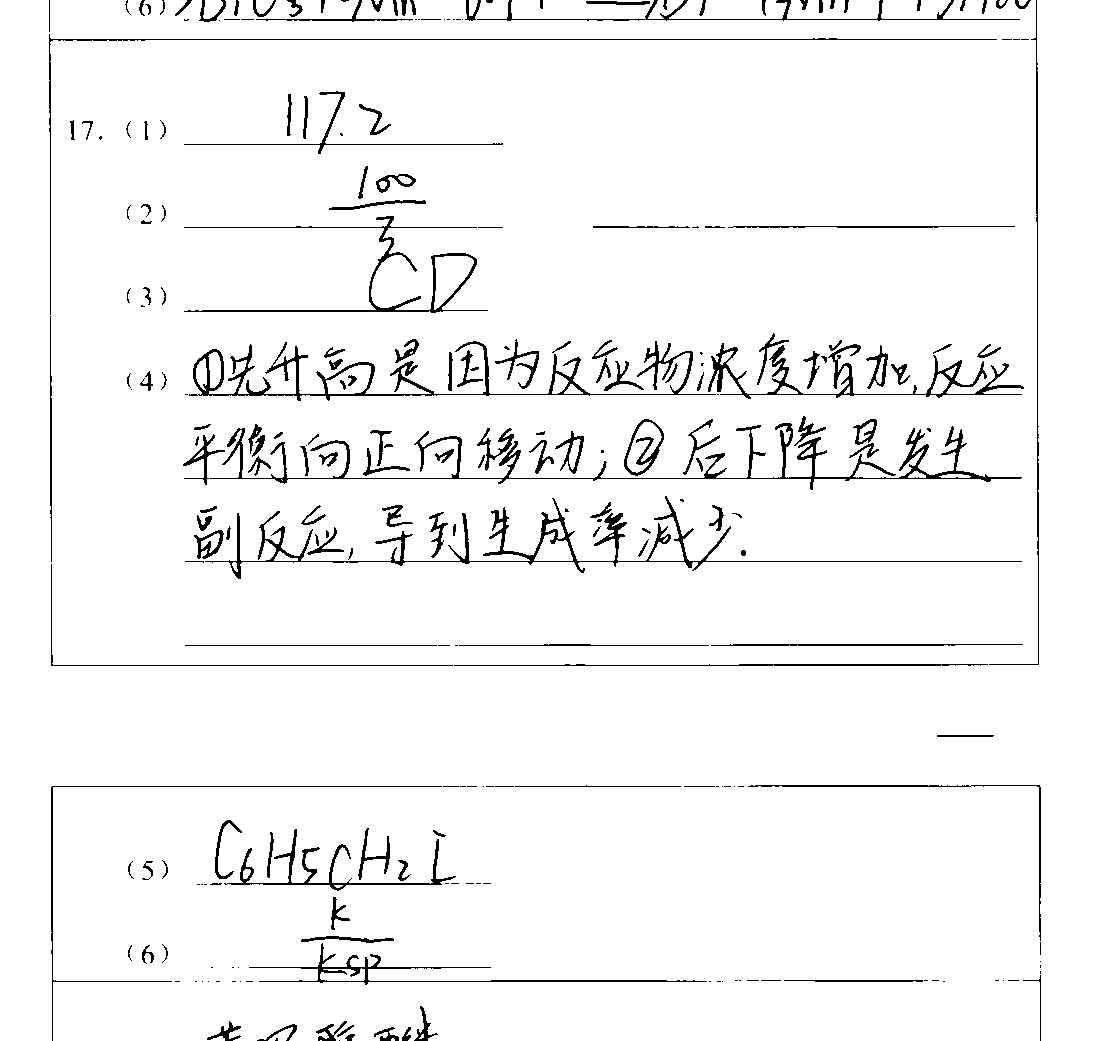 (6)
17. (1) 117.2
(2) 100/3
(3) CD
(4) ①先升高是因为反应物浓度增加,反应
平衡向正向移动;②后下降是发生
副反应,导到生成率减少.
(5) C6H5CH2I
(6) K/Ksp